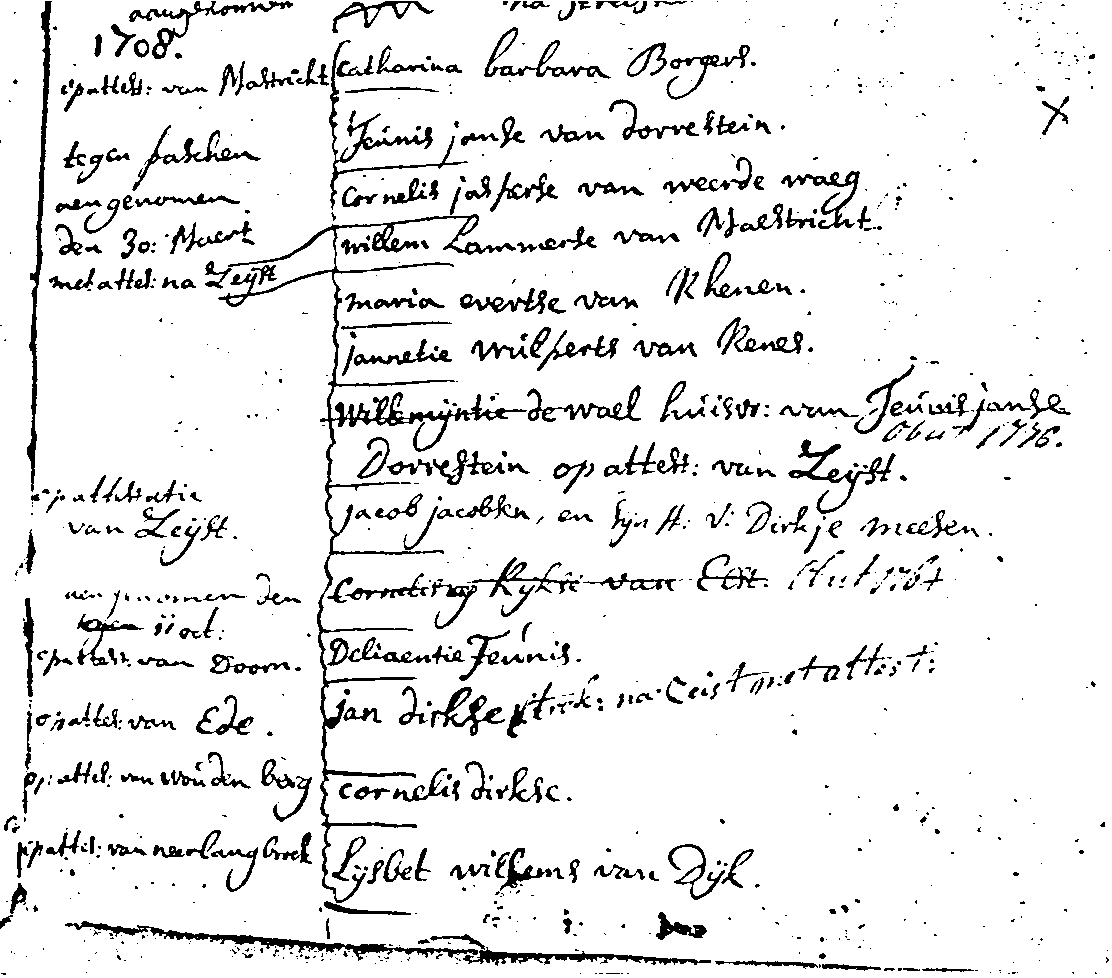 aangenomen
1708.
opattest: van Mastricht Catharina barbara Borgers.
Teunis janse van dorrestein.
tegen paschen
aengenomen cornelis jasperse van weerde waeg
den 30: Maert willem Lammerse van Maestricht.
met attest: na Zeyst
maria evertse van Rhenen.
jannetie wulperts van Renes.
Willemyntie de wael huisvr: van Teunis janse
obut 1776.
Dorrestein op attest: van Zeyst.
opattestatie
van Zeyst. jacob jacobsen, en syn H. V: Dirkje meesen.
aengenomen den Cornelis Rykse van Elst. Obut 1764
tegen 11 oct:
opattest: van Doorn. Deliaentie Teunis.
opattest: van Ede. jan dirkse vertrok: na Ceist met attest:
op: attest: van wouden berg cornelis dirkse.
opattest: van neerlangbroek Lysbet willems van Dyk.